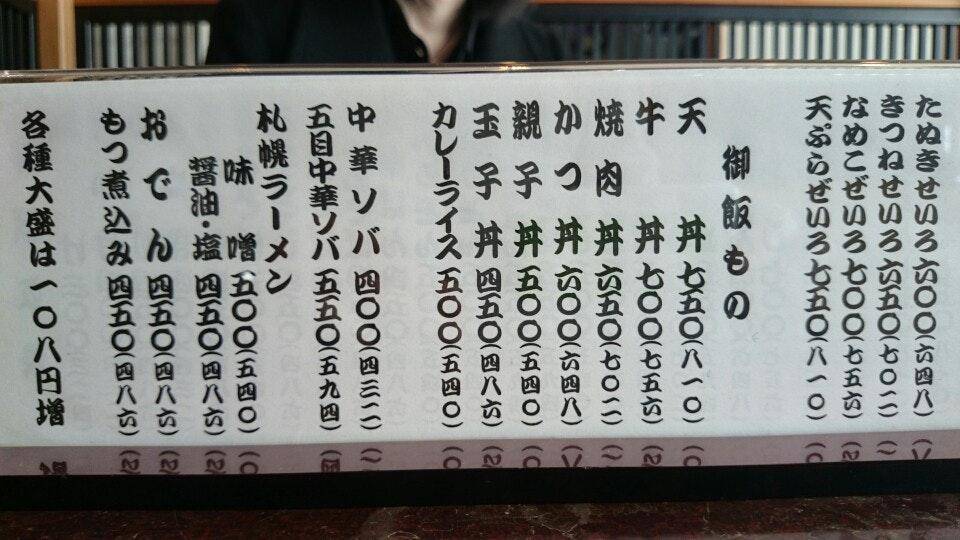 たぬきせいろ 六〇〇(六四八)
きつねせいろ 六五〇(七〇二)
なめこぜいろ 七〇〇(七五六)
天ぷらぜいろ 七五〇(八一〇)
御飯もの
天丼 七五〇(八一〇)
牛丼 七〇〇(七五六)
焼肉丼 六五〇(七〇二)
かつ丼 六〇〇(六四八)
親子丼 五〇〇(五四〇)
玉子丼 四五〇(四八六)
カレーライス 五〇〇(五四〇)
中華ソバ 四〇〇(四三二)
五目中華ソバ 五五〇(五九四)
札幌ラーメン
味噌 五〇〇(五四〇)
醤油・塩 四五〇(四八六)
おでん 四五〇(四八六)
もつ煮込み 四五〇(四八六)
各種大盛は一〇八円増